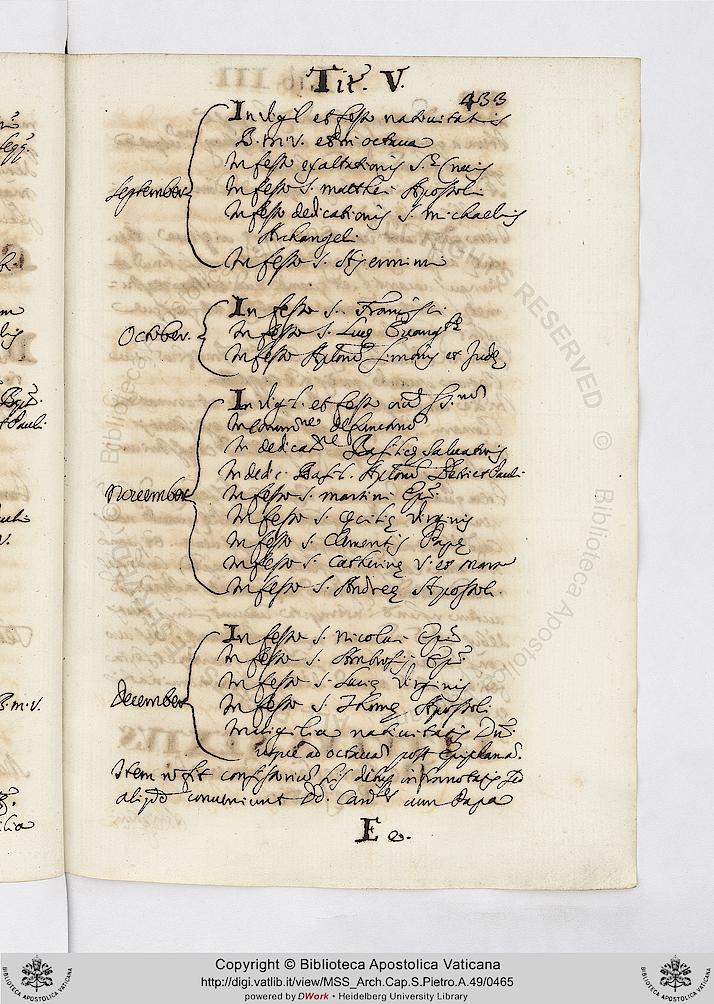 Tit. V.
433
September
In vigil. et festo nativitatis
B. M. V. et in octava
In festo exaltationis S. Crucis
In festo S. Matthei Apostoli
In festo dedicationis S. Michaelis
Archangeli
In festo S. Hieronimi
October.
In festo S. Francisci
In festo S. Luce Evang.
In festo Aplorum Simonis et Jude
November
In vigil. et festo
defunctorum
In dedicat Basilice Salvatoris
In dedic. Basil. Aplorum Petri et Pauli
In festo S. Martini Epi.
In festo S. Cecilie Virginis
In festo S. Clementis Pape
In festo S. Catherine V. et Mart
In festo S. Andree Apostoli.
December
In festo S. Nicolai Epi
In festo S. Ambrosij Epi
In festo S. Lucie Virginis
In festo S. Thome Apostoli
In vigilia nativitatis Dni.
usque ad octavam post Epiphania.
Item fit
conveniunt DD. Card cum Papa
E
B. M. V.
Copyright © Biblioteca Apostolica Vaticana
http://digi.vatlib.it/view/MSS_Arch.Cap.S.Pietro.A.49/0465
powered by DWork • Heidelberg University Library